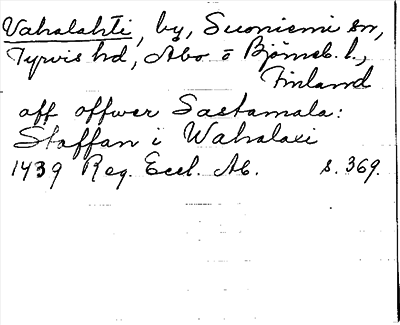 Vahalahti, by, Suoniemi sn,
Tyrvis hd, Åbo o Björneb. l.,
Finland
aff offwer Sastamala:
Staffan i Wahalaxi
1439 Reg. Eccl. Ab. s. 369.